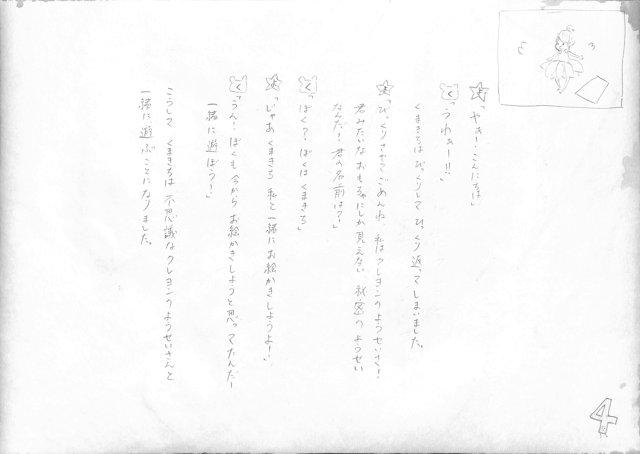 「やぁー！こんにちは」
く「うわぁー!!」
くまきちはびっくりしてひっくり返ってしまいました。
「びっくりさせてごめんね 私はクレヨンのようせいさ！
君みたいなおもちゃにしか見えない秘密のようせい
なんだ！君の名前は？」
く「ぼく？ぼくはくまきち」
「じゃあくまきち 私と一緒にお絵かきしようよー！」
く「うん！ぼくも今からお絵かきしようと思ってたんだー
一緒に遊ぼうー！」
こうしてくまきちは不思議なクレヨンのようせいさんと
一緒に遊ぶことになりました。
4